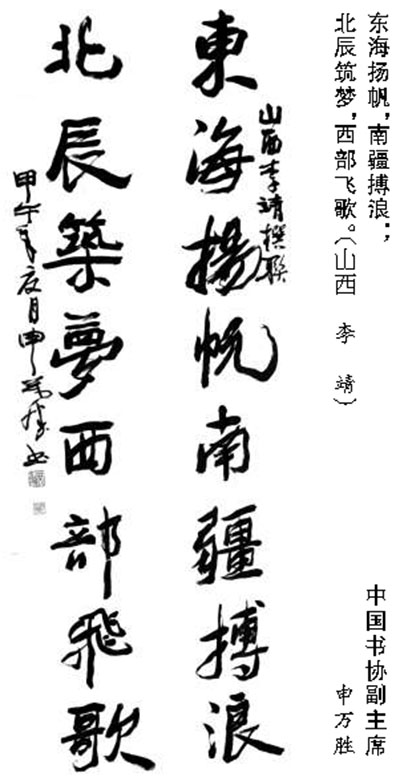 东海扬帆，南疆搏浪；
北辰筑梦，西部飞歌。（山西 李靖）
中国书协副主席
申万胜
東海揚帆南疆搏浪
山西李靖撰联
北辰築夢西部飛歌